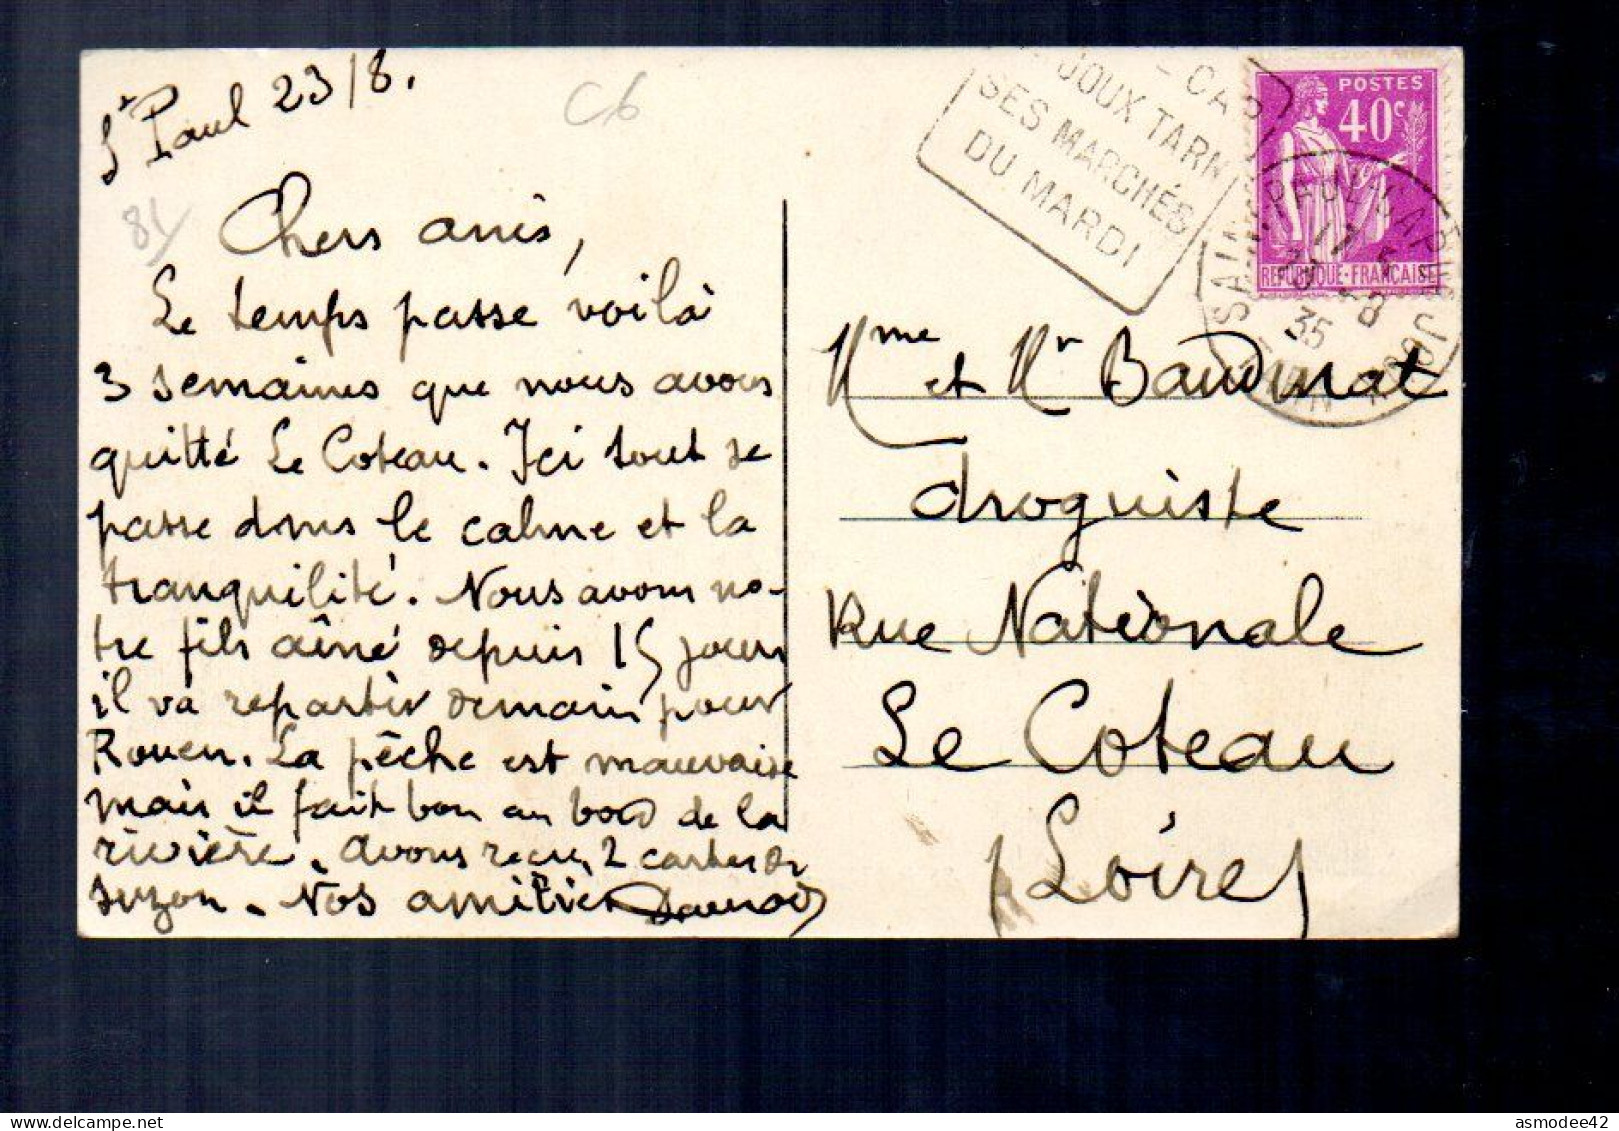 St Paul 23/8.
C6
81
Chers amis,
Le temps passe voilà
3 semaines que nous avons
quitté Le Coteau. Ici tout se
passe dans le calme et la
tranquilité. Nous avons no-
tre fils aîné depuis 15 jours
il va repartir demain pour
Rouen. La pêche est mauvaise
mais il fait bon au bord de la
rivière. Avons reçu 2 cartes de
Suzon. Nos amitiés
- CAP
JOUX TARN
SES MARCHÉS
DU MARDI
POSTES
40c
REPUBLIQUE-FRANÇAISE
SAINT-PAUL CAP DE JOUX
17
35
TARN
Mme et Mr Baudinat
droguiste
Rue Nationale
Le Coteau
(Loire)
asmodee42